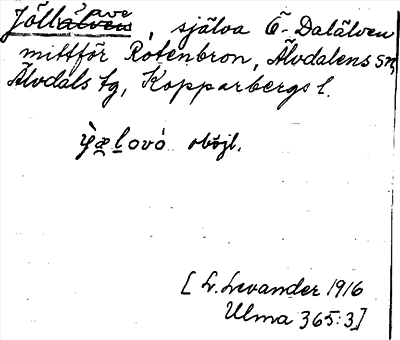 Jöllåave, själva Ö-Dalälven
mittför Rotenbron, Älvdalens sn,
Älvdals tg, Kopparbergs l.
obӧjl.
[L. Levander 1916
Ulma 365:3]